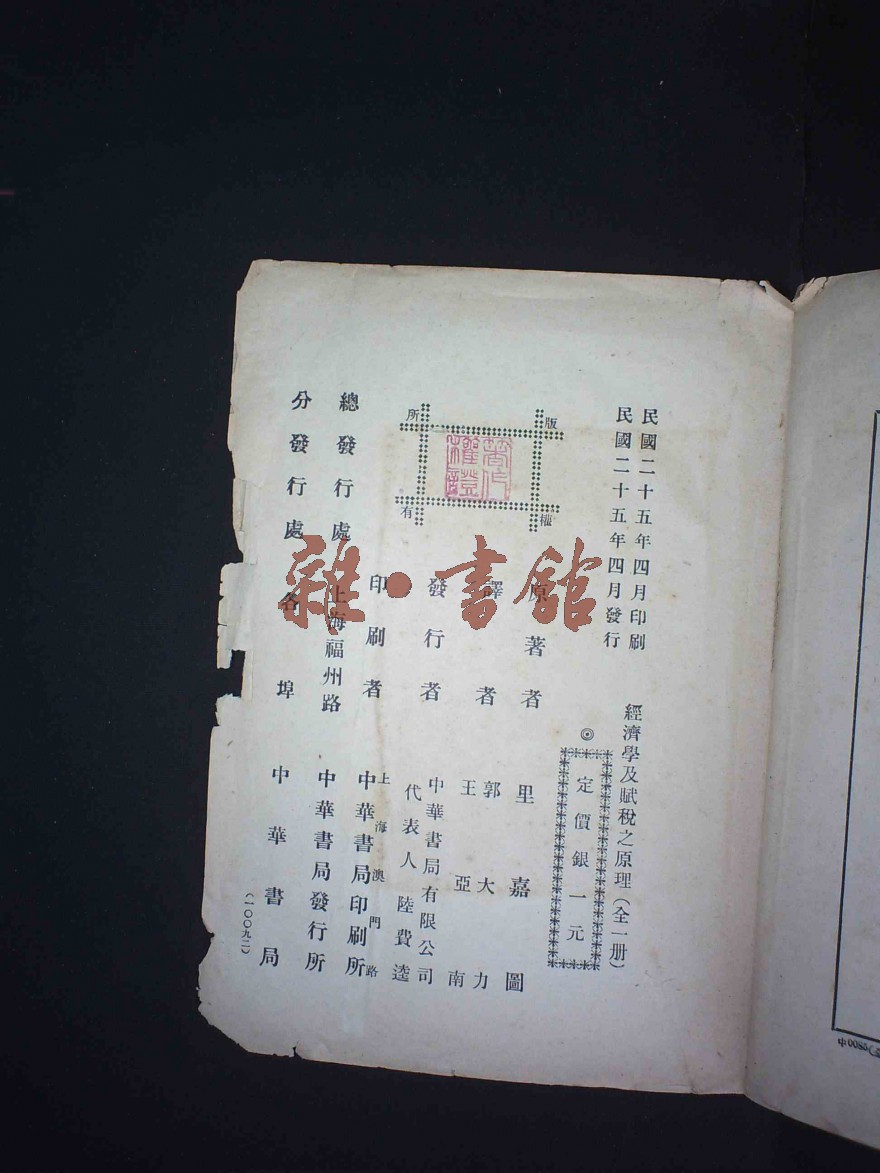 民國二十五年四月印刷
民國二十五年四月發行
經濟學及賦稅之原理(全一册)
◎定價銀一元
版權所有
原著者 里嘉圖
譯者 郭大力
王亞南
發行者 中華書局有限公司
代表人陸費逵
印刷者 上海澳門路
中華書局印刷所
總發行處 上海福州路 中華書局發行所
分發行處 各埠 中華書局
(一〇〇九二)
雜·書館